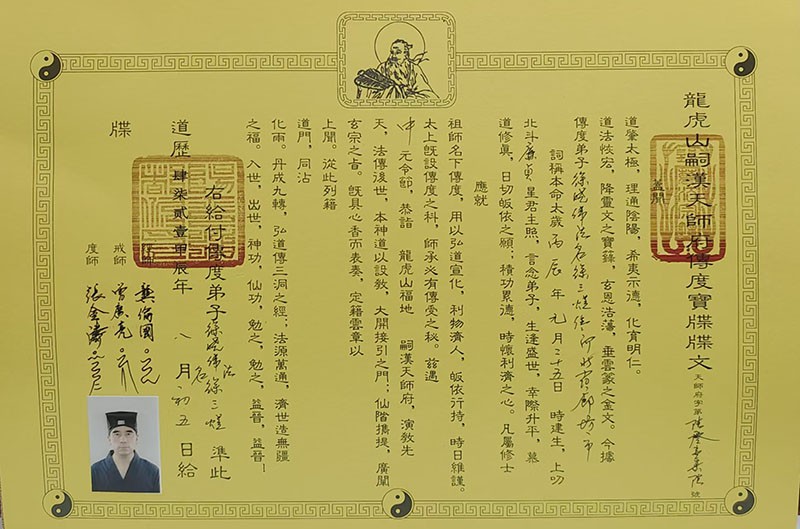 龍虎山嗣漢天師府傳度寶牒牒文
天師府字第
號
蓋聞
道肇太極,理通陰陽,希夷示德,化育明仁。
道法恢宏,降靈文之寶籙,玄恩浩蕩,垂雲篆之金文。今據
傳度弟子徐 法名徐三
詞稱本命太歲丙辰年元月二十五日 時建生,上叨
北斗廉貞星君主照,言念弟子,生逢盛世,幸際升平,慕
道修眞,日切皈依之願;積功累德,時懷利濟之心。凡屬修士
應就
祖師名下傳度,用以弘道宣化,利物濟人,皈依行持,時日維謹。
太上旣設傳度之科,師承必有傳受之秘。茲遇
中元令節,恭詣 龍虎山福地 嗣漢天師府,演教先
天,法傳後世,本神道以設教,大開接引之門;仙階攜提,廣闡
玄宗之旨。旣具心香而表奏,定籍雲章以
上聞。從此列籍
道門,同沾
化雨。丹成九轉,弘道傳三洞之經;法源萬通,濟世造無疆
之福。入世,出世,神功,仙功,勉之,勉之,益晉,益晉!
右給付傳度弟子徐 法名徐三 準此
道歷肆柒貳壹甲辰年 八月初五日給
牒
戒師
度師 張金濤